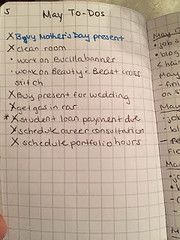 5
May To-Dos
X Buy Mother's Day present
X clean room
· work on Bucilla banner
· work on Beauty + Beast cross
stitch
X Buy present for wedding
X get gas in car
X student loan payment due
X schedule career consultation
X schedule portfolio hours
May
· job
· blog